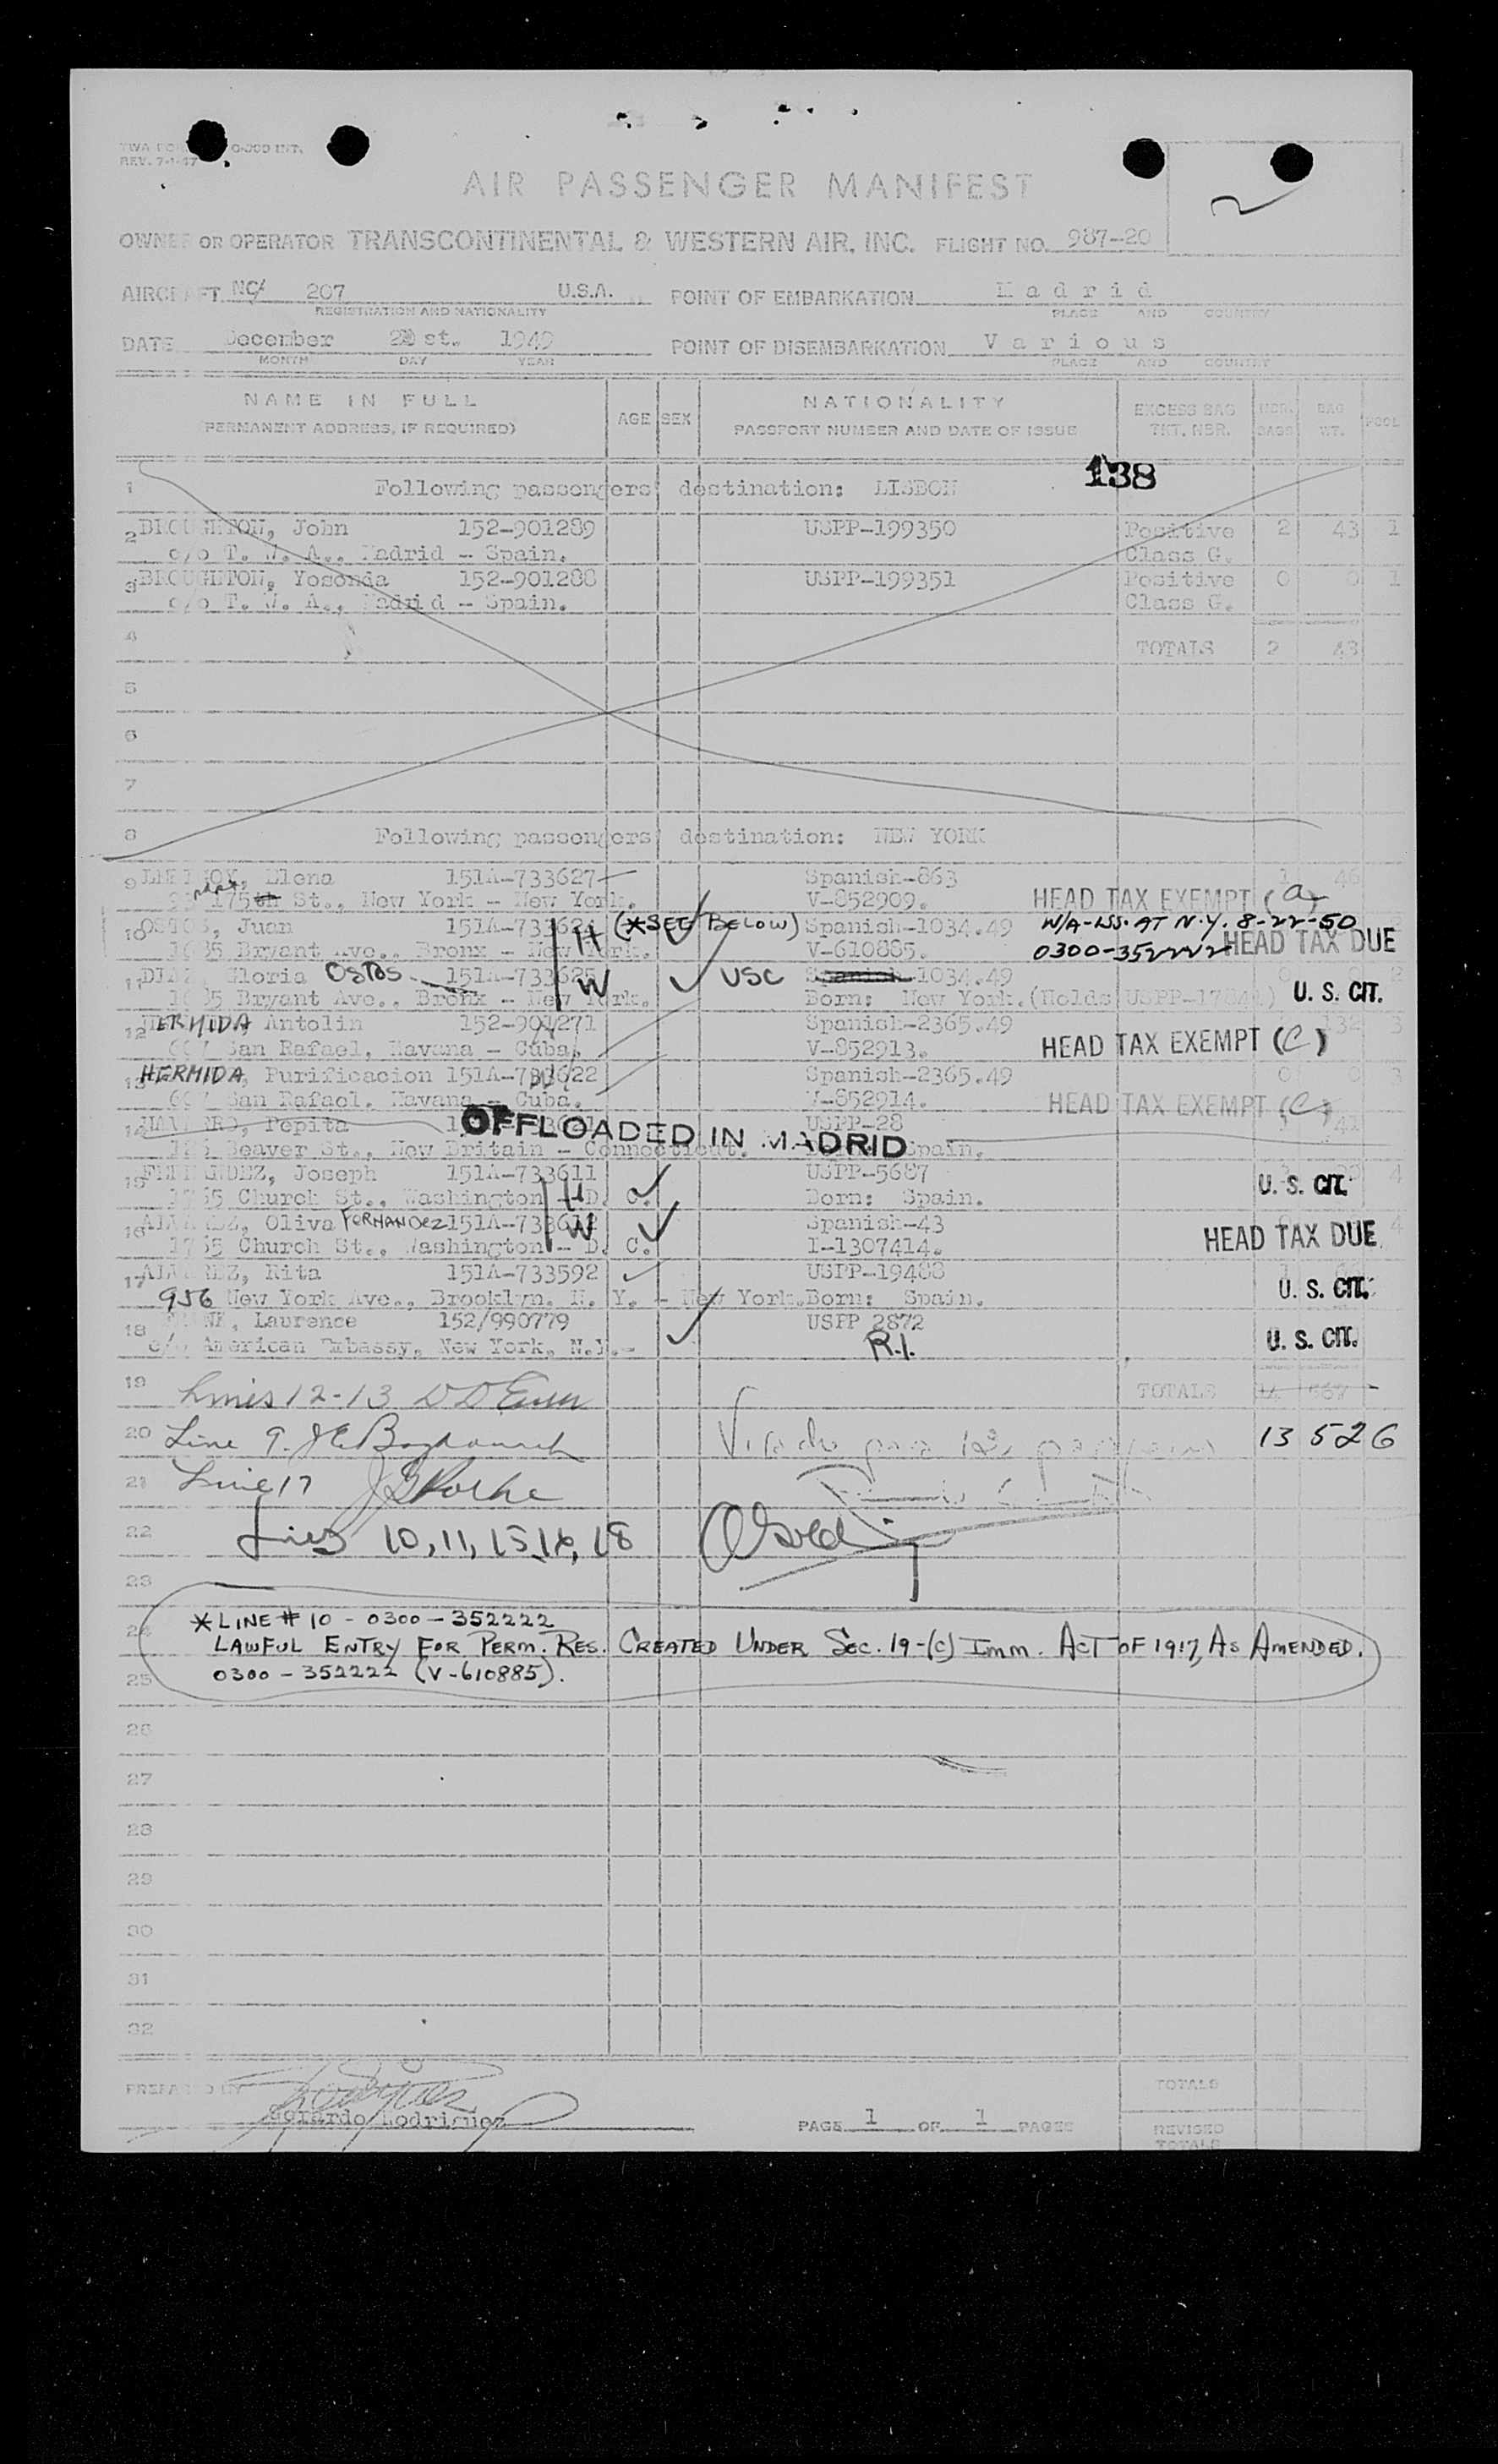 REV. 7-1-47
AIR PASSENGER MANIFEST
OWNER OR OPERATOR TRANSCONTINENTAL & WESTERN AIR, INC. FLIGHT NO. 987-20
AIRCRAFT NC/ 207 U.S.A. POINT OF EMBARKATION Madrid
REGISTRATION AND NATIONALITY PLACE AND COUNTRY
DATE December st. 1949 POINT OF DISEMBARKATION Various
MONTH DAY YEAR PLACE AND COUNTRY
NAME IN FULL AGE SEX NATIONALITY EXCESS BAG NBR. BAG POOL
(PERMANENT ADDRESS, IF REQUIRED) PASSPORT NUMBER AND DATE OF ISSUE TKT. NBR. BAGS WT.
138
1 Following passengers destination: LISBON
2 BROUGHTON, John 152-901289 USPP-199350 Positive 2 43 1
c/o T. W. A., Madrid - Spain. Class G.
3 BROUGHTON, Yosonda 152-901288 USPP-199351 Positive 0 0 1
c/o T. W. A., Madrid - Spain. Class G.
4 TOTALS 2 43
5
6
7
8 Following passengers destination: NEW YORK
9 Elena 151A-733627 Spanish-863 1 46
175th St., New York - New York. V-852909. HEAD TAX EXEMPT (a)
10 Juan 151A-733624 (*SEE BELOW) Spanish-1034.49 W/A-ISS. AT N.Y. 8-22-50
Bryant Ave., Bronx - New York. H V-610885. 0300-352222 HEAD TAX DUE
11 Gloria OSTOS 151A-733625 W USC Spanish-1034.49 0 0 2
Bryant Ave., Bronx - New York. Born: New York. (Holds USPP- ) U. S. CIT.
12 HERMIDA Antolin 152-901271 Spanish-2365.49 132 3
San Rafael, Havana - Cuba. V-852913. HEAD TAX EXEMPT (C)
13 HERMIDA, Purificacion 151A-733622 Spanish-2365.49 0 0 3
San Rafael, Havana - Cuba. V-852914. HEAD TAX EXEMPT (C)
14 Pepita OFFLOADED IN MADRID USPP-28 41
Beaver St., New Britain - Connecticut. Spain.
15 Joseph 151A-733611 USPP-5687 4
Church St., Washington - D. C. H Born: Spain. U. S. CIT.
16 Oliva FERNANDEZ 151A-733612 W Spanish-43 4
Church St., Washington - D. C. I-1307414. HEAD TAX DUE
17 Rita 151A-733592 USPP-19488
956 New York Ave., Brooklyn, N. Y. - New York. Born: Spain. U. S. CIT.
18 Laurence 152/990779 USPP 2872
c/o American Embassy, New York, N.Y. R.I. U. S. CIT.
19 Lines 12-13 TOTALS
20 Line 9. 13 526
21 Line 17
22 Lines 10, 11, 15, 16, 18
23
24 *LINE # 10 - 0300-352222
LAWFUL ENTRY FOR PERM. RES. CREATED UNDER SEC. 19-(C) IMM. ACT OF 1917, AS AMENDED.
25 0300-352222 (V-610885).
26
27
28
29
30
31
32
PREPARED BY TOTALS
Gerardo Rodriguez PAGE 1 OF 1 PAGES REVISED
TOTALS